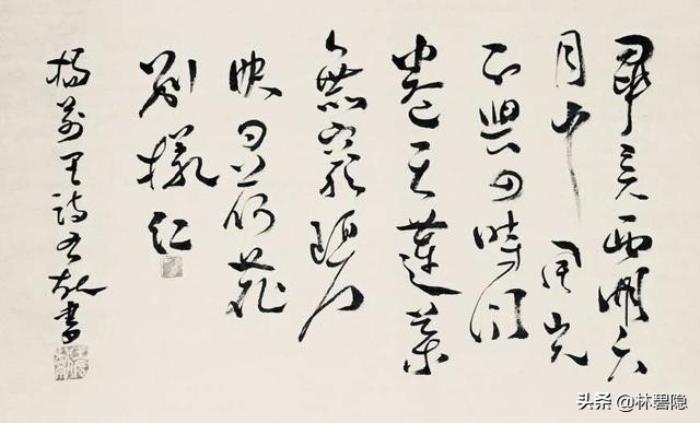 畢竟西湖六
月中風光
不與四時同
接天蓮葉
無窮碧
映日荷花
別樣紅
楊萬里詩 書
头条 @林碧隐